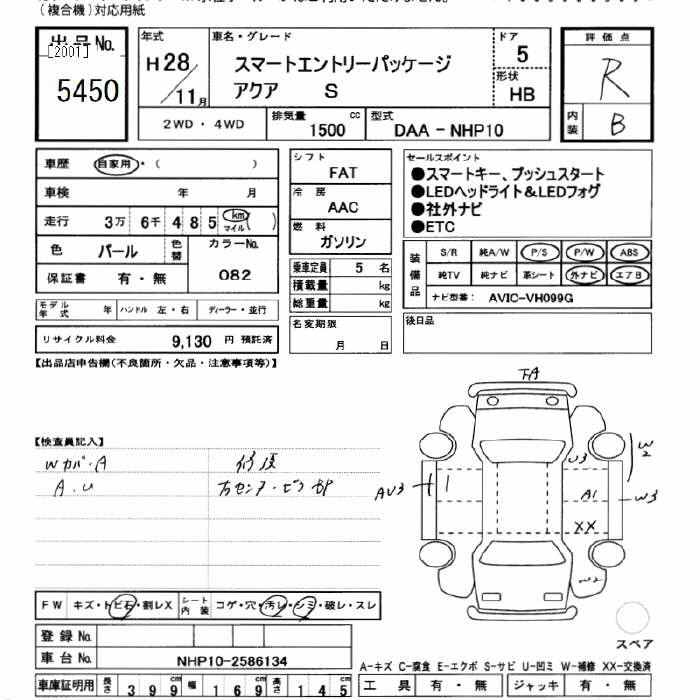 (複合機)対応用紙
出品No.
[200T]
5450
年式
H28/11月
車名・グレード
スマートエントリーパッケージ
アクア S
ドア
5
形状
HB
2WD・4WD
排気量 1500 cc
型式 DAA-NHP10
評価点
R
内装 B
車歴 自家用・( )
車検 年 月
走行 3万6千485 km マイル( )
色 パール 色替
カラーNo. 082
保証書 有・無
モデル年式 年 ハンドル 左・右 ディーラー・並行
リサイクル料金 9,130 円 預託済
シフト FAT
冷房 AAC
燃料 ガソリン
乗車定員 5 名
積載量 kg
総重量 kg
名変期限 月 日
セールスポイント
●スマートキー、プッシュスタート
●LEDヘッドライト&LEDフォグ
●社外ナビ
●ETC
装備品
S/R 純A/W P/S P/W ABS
純TV 純ナビ 革シート 外ナビ エアB
ナビ型番: AVIC-VH099G
後日品
【出品店申告欄(不良箇所・欠品・注意事項等)】
【検査員記入】
Wカバ・A 修復
A.U 右センターピラー部
FA
U3
W2
AU3
A1
W3
XX
W2
スペア
FW キズ・トビ石・割レX
シート内装 コゲ・穴・汚レ・シミ・破レ・スレ
2
2
登録No.
車台No. NHP10-2586134
車庫証明用 長さ 399cm 幅 169cm 高さ 145cm
A-キズ C-腐食 E-エクボ S-サビ U-凹ミ W-補修 XX-交換済
工具 有・無 ジャッキ 有・無